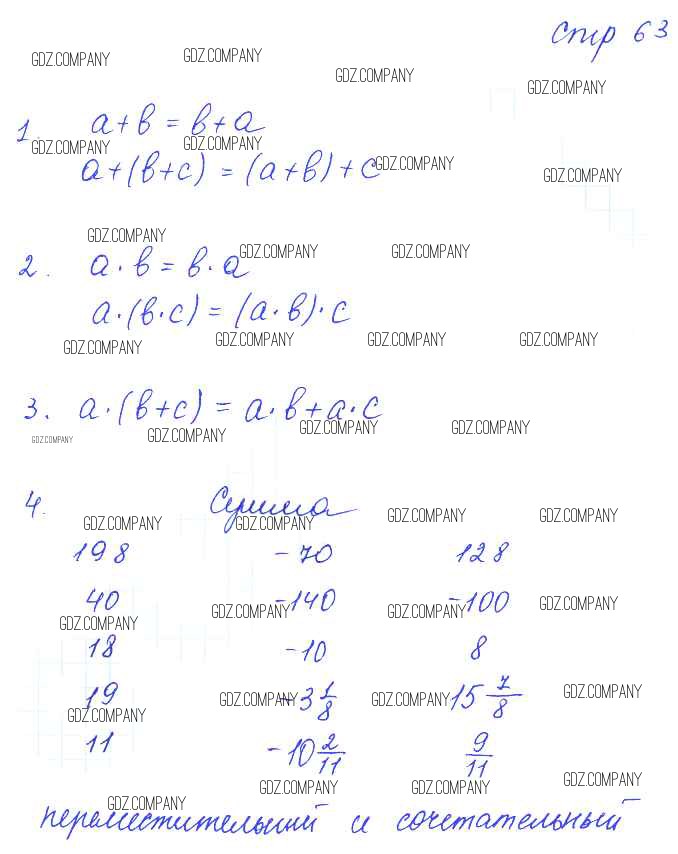 стр 63
GDZ.COMPANY GDZ.COMPANY GDZ.COMPANY GDZ.COMPANY
1. a+b = b+a
GDZ.COMPANY GDZ.COMPANY GDZ.COMPANY GDZ.COMPANY
a+(b+c) = (a+b)+c
GDZ.COMPANY GDZ.COMPANY GDZ.COMPANY
2. a·b = b·a
a·(b·c) = (a·b)·c
GDZ.COMPANY GDZ.COMPANY GDZ.COMPANY GDZ.COMPANY
3. a·(b+c) = a·b+a·c
GDZ.COMPANY GDZ.COMPANY GDZ.COMPANY GDZ.COMPANY
4. Сумма
GDZ.COMPANY GDZ.COMPANY GDZ.COMPANY GDZ.COMPANY
198 -70 128
40 -140 -100
GDZ.COMPANY GDZ.COMPANY GDZ.COMPANY GDZ.COMPANY
18 -10 8
19 -3 1/8 15 7/8
GDZ.COMPANY GDZ.COMPANY GDZ.COMPANY GDZ.COMPANY
11 -10 2/11 9/11
GDZ.COMPANY GDZ.COMPANY GDZ.COMPANY GDZ.COMPANY
переместительный и сочетательный